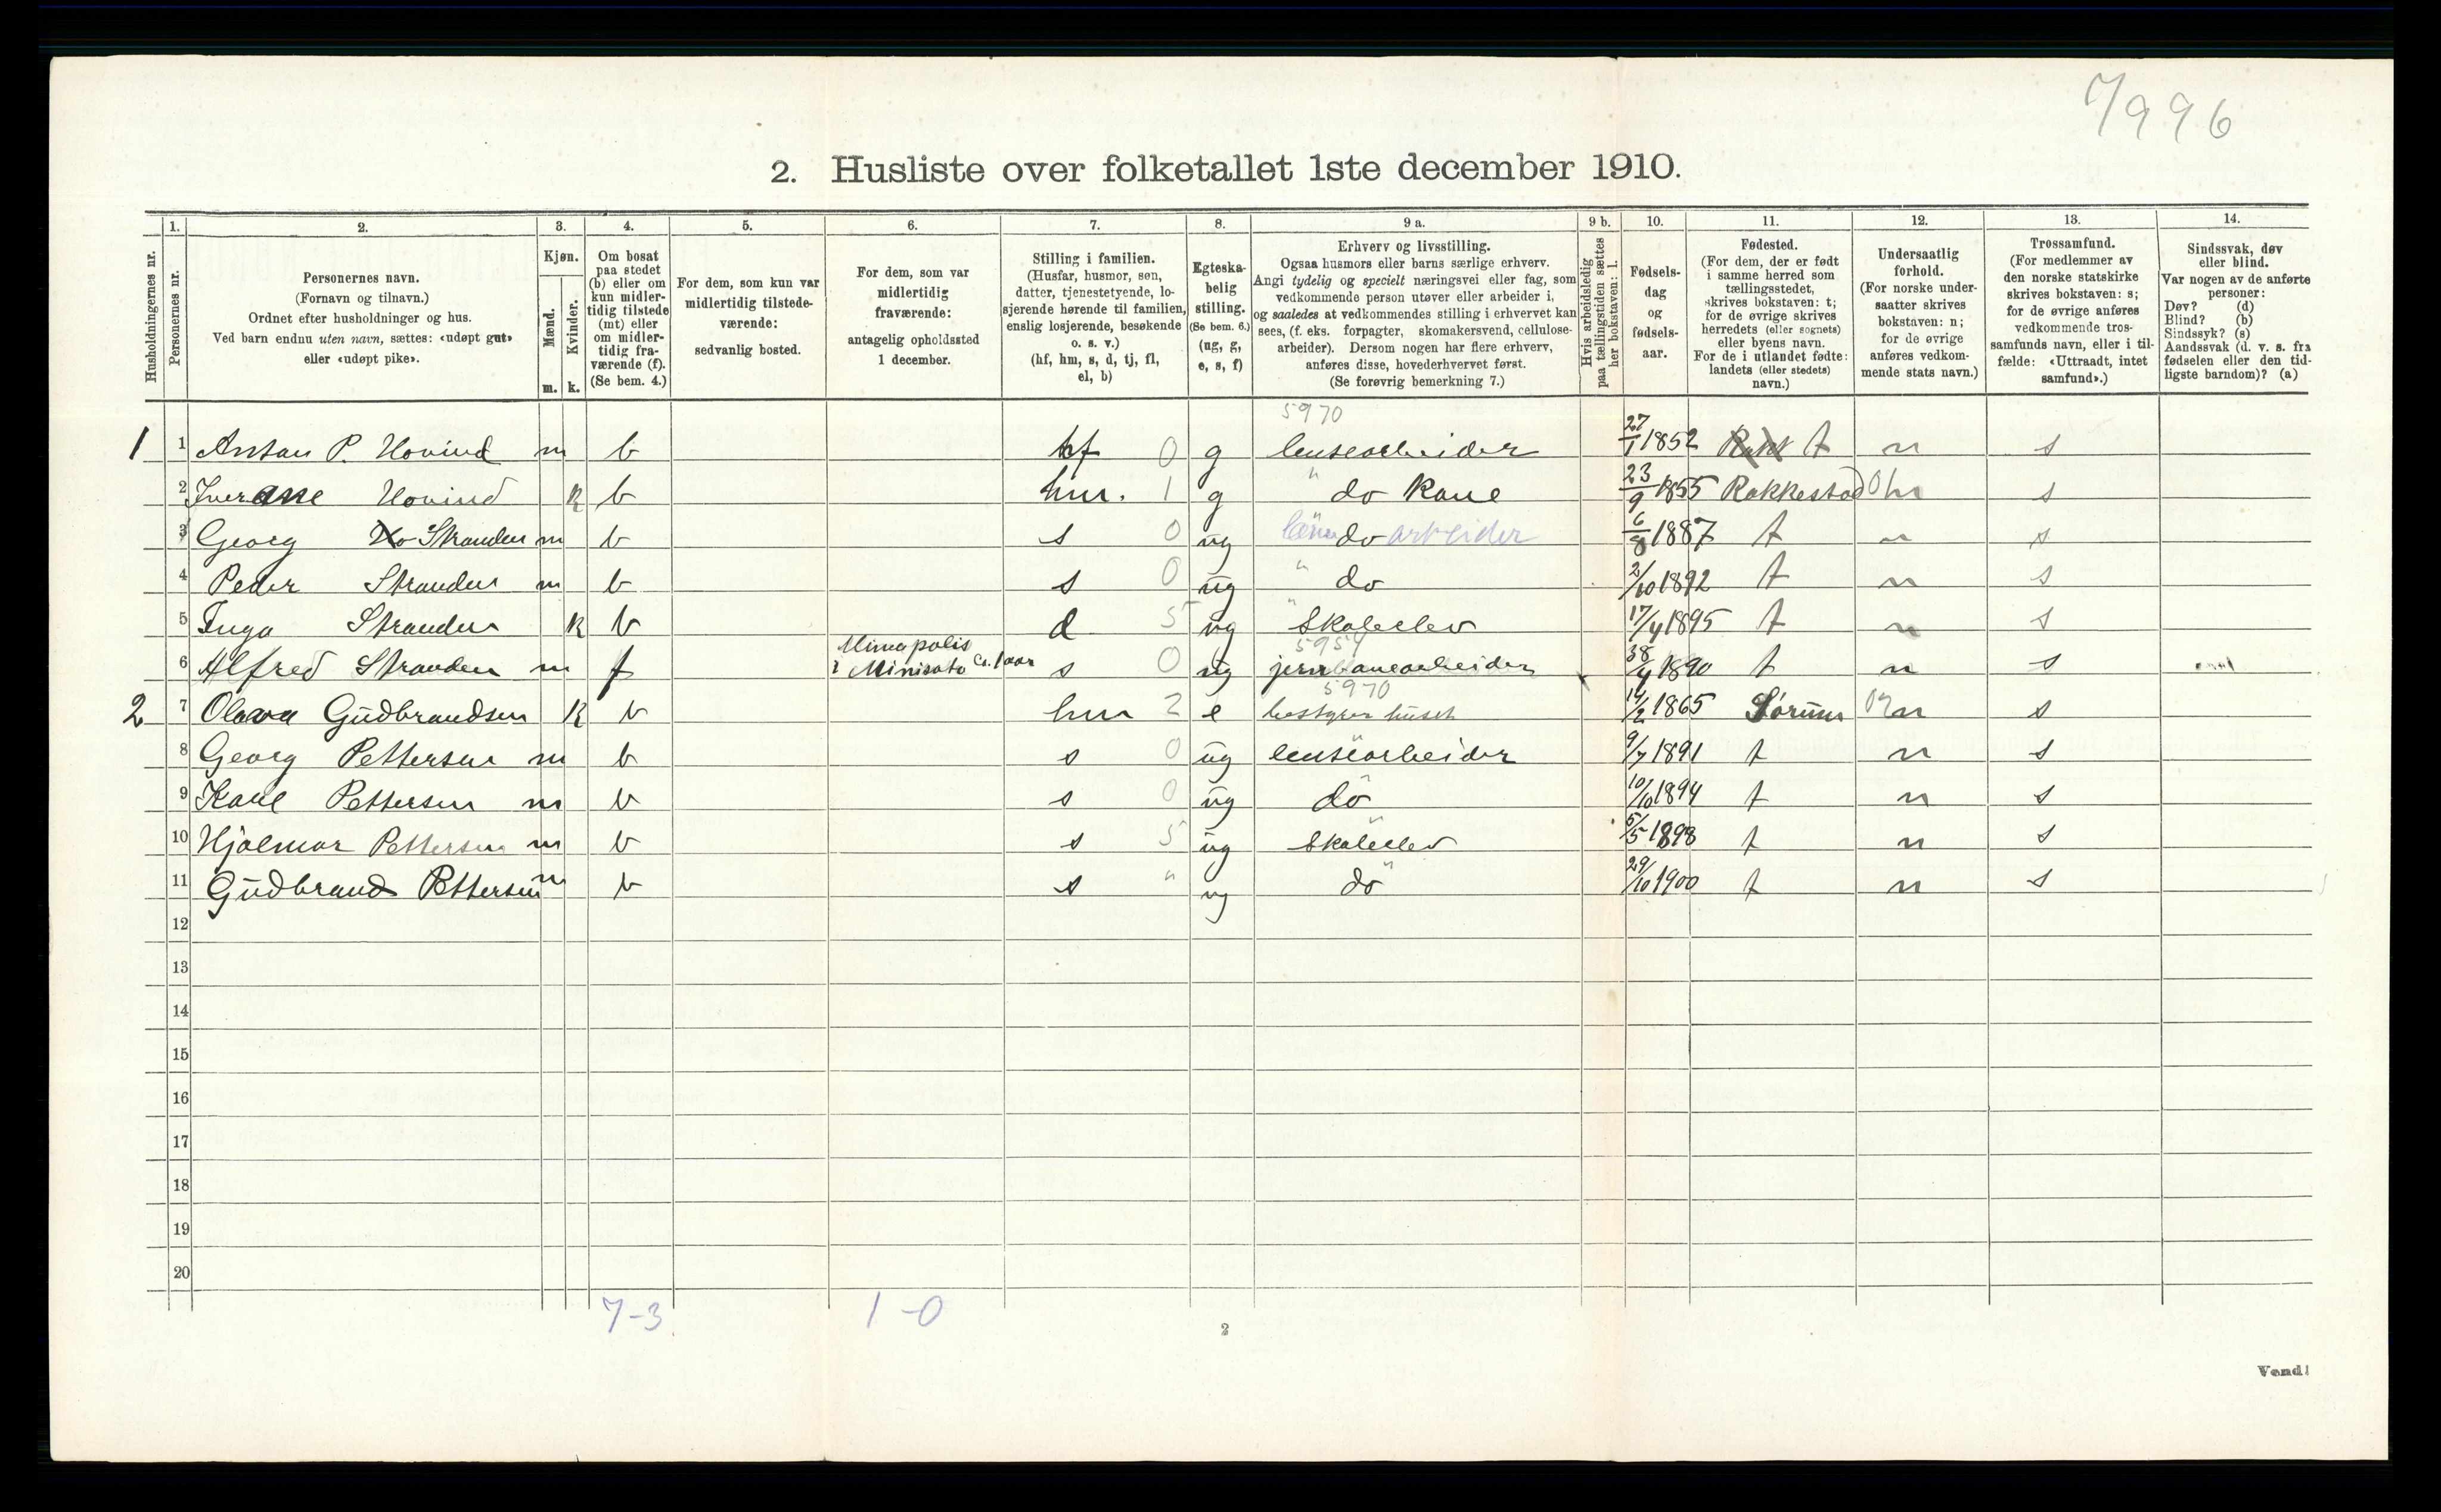 7/996
2. Husliste over folketallet 1ste december 1910.
Husholdningernes nr.
1. Personernes nr.
2. Personernes navn.
(Fornavn og tilnavn.)
Ordnet efter husholdninger og hus.
Ved barn endnu uten navn, sættes: «udøpt gut»
eller «udøpt pike».
3. Kjøn.
Mænd. m.
Kvinder. k.
4. Om bosat
paa stedet
(b) eller om
kun midler-
tidig tilstede
(mt) eller
om midler-
tidig fra-
værende (f).
(Se bem. 4.)
5. For dem, som kun var
midlertidig tilstede-
værende:
sedvanlig bosted.
6. For dem, som var
midlertidig
fraværende:
antagelig opholdssted
1 december.
7. Stilling i familien.
(Husfar, husmor, søn,
datter, tjenestetyende, lo-
sjerende hørende til familien,
enslig losjerende, besøkende
o. s. v.)
(hf, hm, s, d, tj, fl,
el, b)
8. Egteska-
belig
stilling.
(Se bem. 6.)
(ug, g,
e, s, f)
9 a. Erhverv og livsstilling.
Ogsaa husmors eller barns særlige erhverv.
Angi tydelig og specielt næringsvei eller fag, som
vedkommende person utøver eller arbeider i,
og saaledes at vedkommendes stilling i erhvervet kan
sees, (f. eks. forpagter, skomakersvend, cellulose-
arbeider). Dersom nogen har flere erhverv,
anføres disse, hovederhvervet først.
(Se forøvrig bemerkning 7.)
9 b. Hvis arbeidsledig
paa tællingstiden sættes
her bokstaven: l.
10. Fødsels-
dag
og
fødsels-
aar.
11. Fødested.
(For dem, der er født
i samme herred som
tællingsstedet,
skrives bokstaven: t;
for de øvrige skrives
herredets (eller sognets)
eller byens navn.
For de i utlandet fødte:
landets (eller stedets)
navn.)
12. Undersaatlig
forhold.
(For norske under-
saatter skrives
bokstaven: n;
for de øvrige
anføres vedkom-
mende stats navn.)
13. Trossamfund.
(For medlemmer av
den norske statskirke
skrives bokstaven: s;
for de øvrige anføres
vedkommende tros-
samfunds navn, eller i til-
fælde: «Uttraadt, intet
samfund».)
14. Sindssvak, døv
eller blind.
Var nogen av de anførte
personer:
Døv? (d)
Blind? (b)
Sindssyk? (s)
Aandssvak (d. v. s. fra
fødselen eller den tid-
ligste barndom)? (a)
5970
1 1 Anton P. Hovind m b hf 0 g lensearbeider 27/1 1852 t n s
2 Hovind k b hm. 1 g " do Kone 23/9 1855 Rakkestad 01 n s
3 Georg Stranden m b s 0 ug do arbeider 6/8 1887 t n s
4 Peder Stranden m b s 0 ug " do 2/10 1892 t n s
5 Inga Stranden k b d 5 ug " Skoleelev 17/4 1895 t n s
Minapolis 5954
6 Alfred Stranden m f i Minisoto Ca. 1 aar s 0 ug jernbanearbeider 1890 t n s
5970
2 7 Olava Gudbrandsen k b hm 2 e bestyrer huset 14/2 1865 Sørum 02 n s
8 Georg Pettersen m b s 0 ug lensearbeider 9/7 1891 t n s
9 Karl Pettersen m b s 0 ug do 10/10 1894 t n s
10 Hjalmar Pettersen m b s 5 ug Skoleelev 5/5 1898 t n s
11 Gudbrand Pettersen m b s " ug do 29/10 1900 t n s
12
13
14
15
16
17
18
19
20
7-3 1-0
2
Vend!